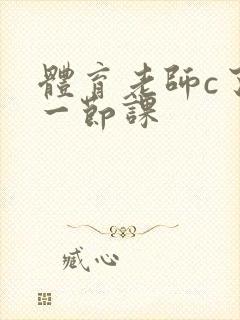 體育老師c了
一節課
臧心